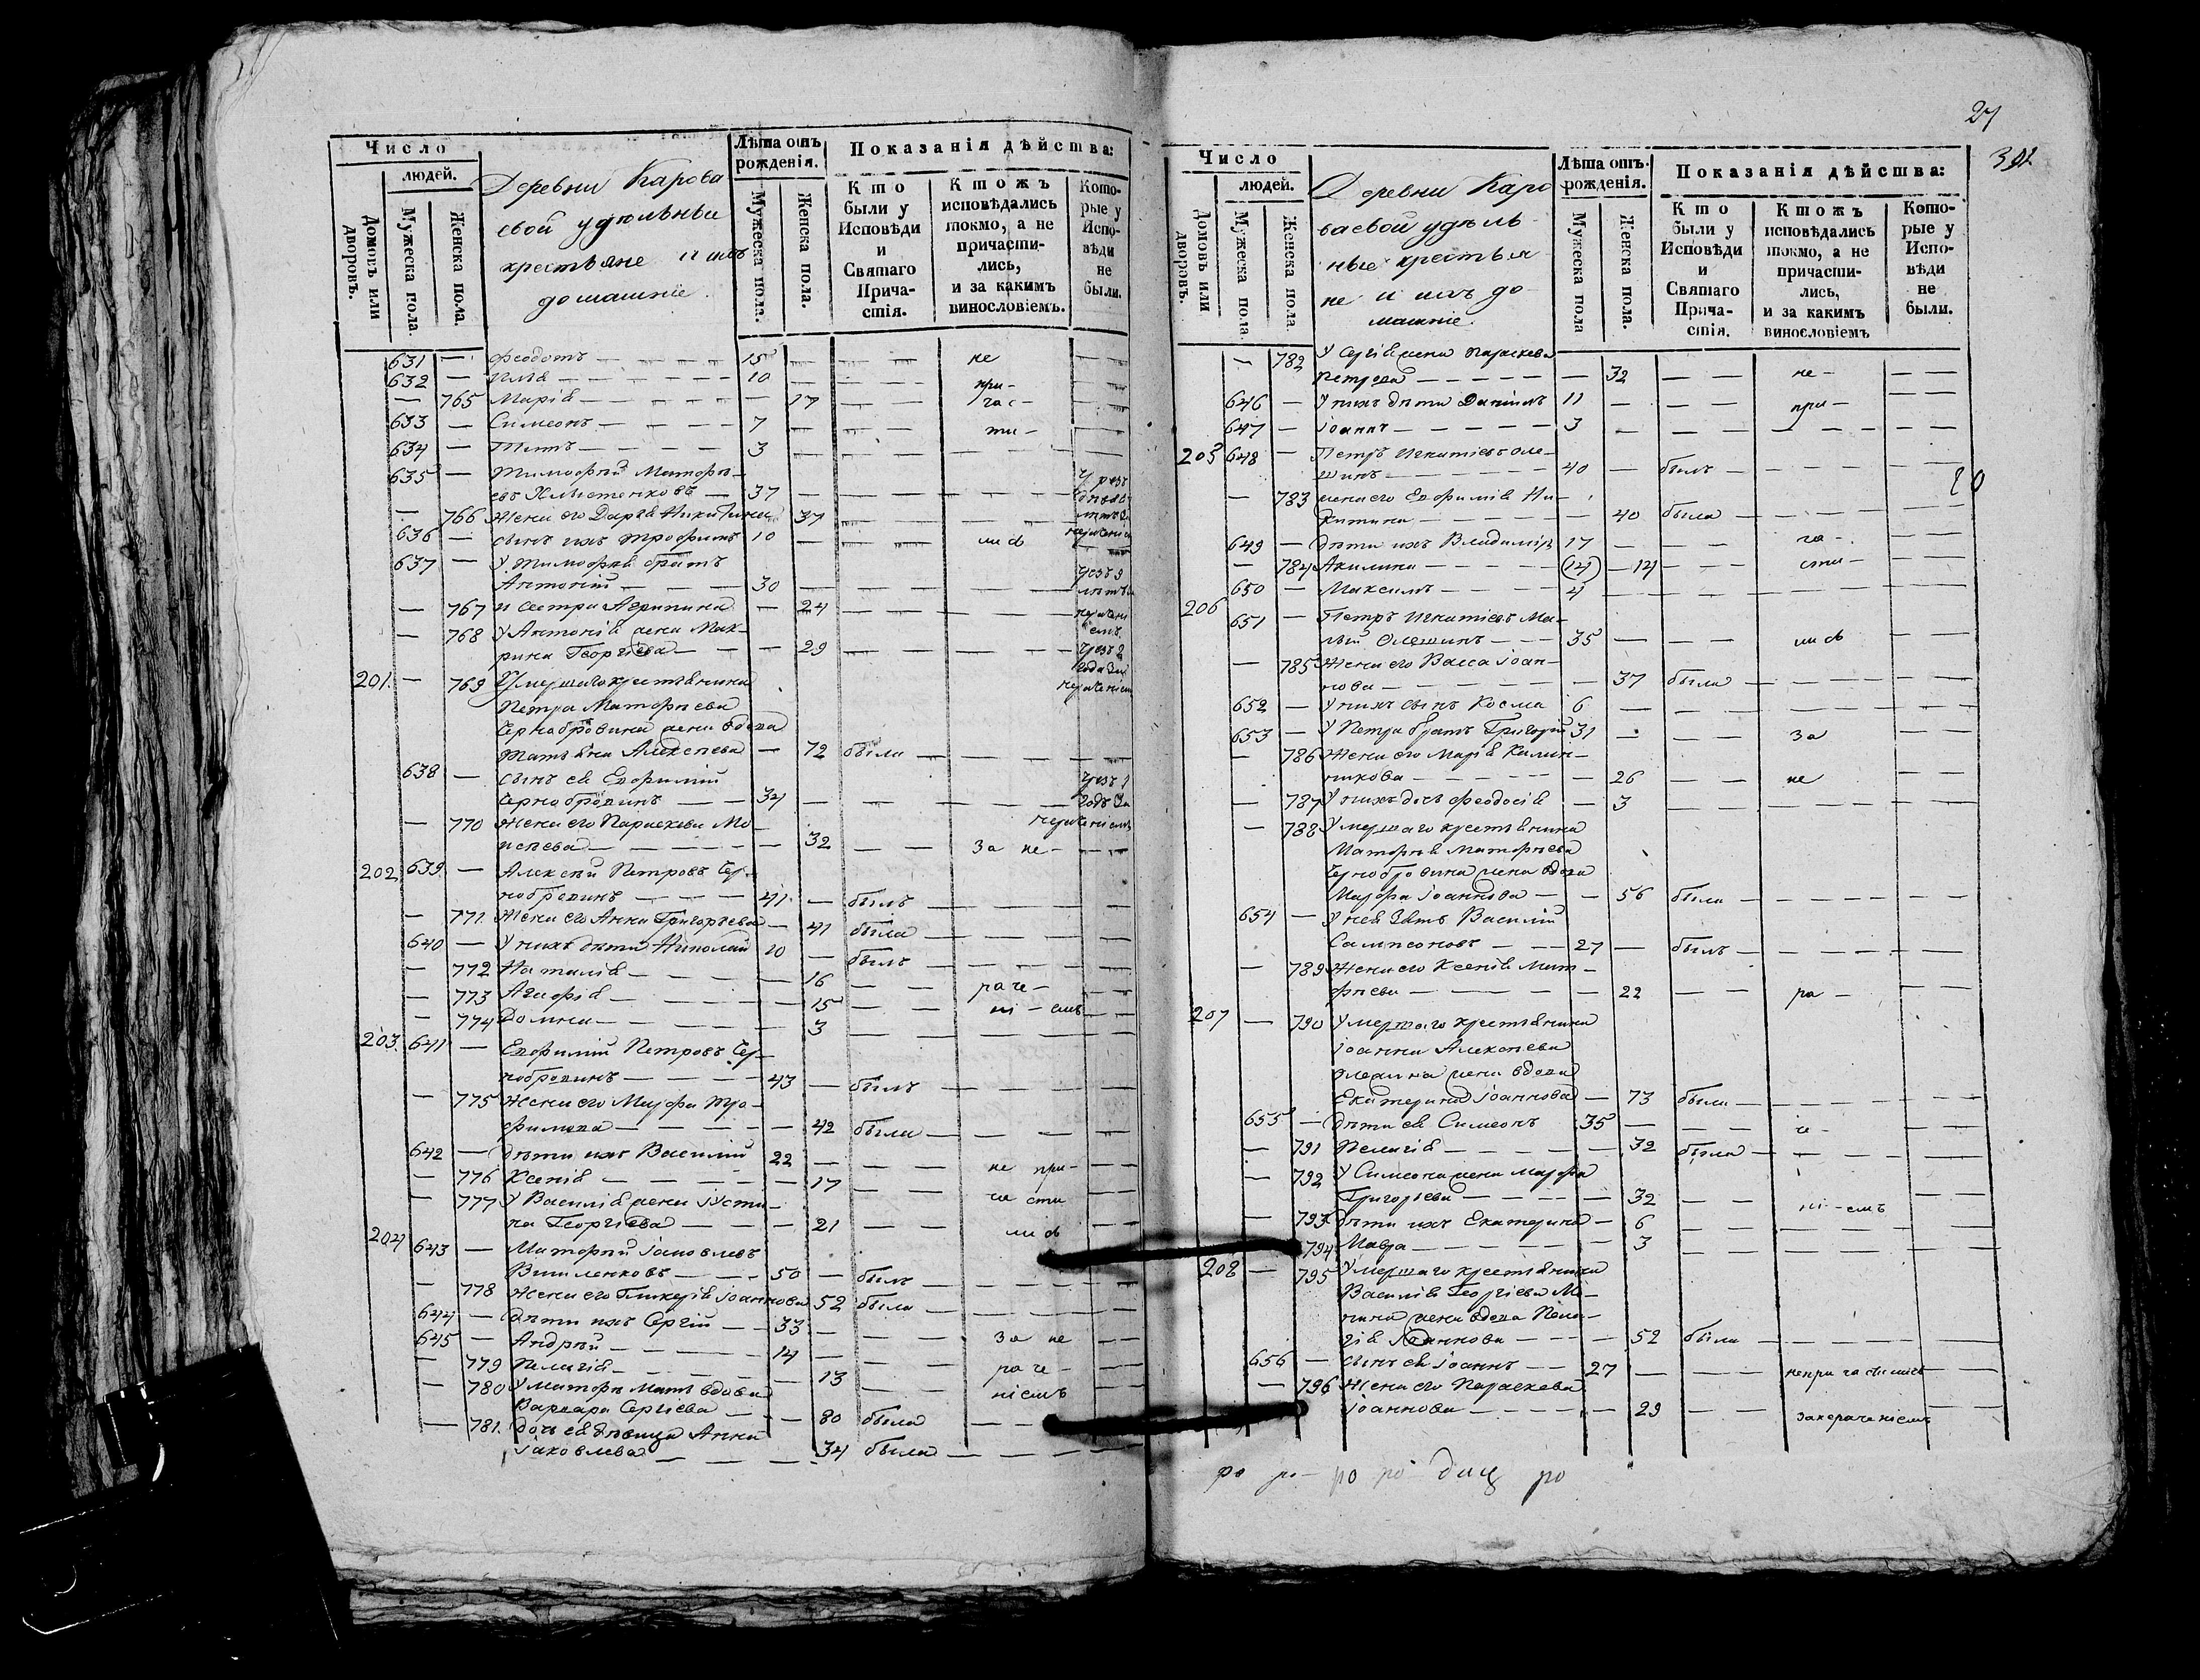 Число
людей.
Домовъ или дворовъ.
Мужеска пола.
Женска пола.
Деревни Карова
евой удѣльные
крестьяне и ихъ
домашніе.
Лѣта отъ рожденія.
Мужеска пола.
Женска пола.
Показанія дѣйства:
Кто были у Исповѣди и Святаго Причастія.
Ктожъ исповѣдались токмо, а не причастились, и за какимъ винословіемъ.
Которые у Исповѣди не были.
631 — Феодотъ — 15 — не
632 — Илья — 10 — при-
— 765 Марія — 17 — час-
633 — Симеонъ — 7 — ти-
634 — Титъ — 3
635 — Тимофей Матфѣ-
евъ — 37
— 766 Жена его Дарія Никитина 37
636 — сынъ ихъ Трофимъ 10 — ись
637 — У Тимофея братъ
Антоній — 30
— 767 и сестра Агрипина — 24
— 768 У Антонія жена Мак-
рина Георгіева — 29
201. — 769 Умершаго крестьянина
Петра Матфѣева
Чернобровина жена вдова
Татьяна Алексѣева — 72 была
638 — сынъ ея Евфимій
Чернобровинъ — 34
— 770 Жена его Параскева Мо-
исеева — 32 — за не-
202 639 — Алексѣй Петровъ Чер-
нобровинъ — 41 — былъ
— 771. Жена его Анна Григорьева — 41 была
640 — У нихъ дѣти Николай 20 — былъ
— 772 Наталія — 16 — раче-
— 773 Агафія — 15 — ні-емъ
— 774 Домна — 3
203. 641 — Евфимій Петровъ Чер-
нобровинъ — 43 — былъ
— 775 Жена его Марфа Тро-
фимова — 42 была
642 — дѣти ихъ Василій 22 — не при-
— 776 Ксенія — 17 — части
— 777 У Василія жена Іусти-
на Георгіева — 21 — лись
204 643 — Матфей Іаковлевъ
— 50 — былъ
— 778 Жена его Гликерія Іоаннова 52 была
644 — дѣти ихъ Сергій — 33 — за не
645 — Андрей — 14 — раче-
— 779 Пелагія — 13 — ніемъ
— 780 У Матфея мать вдова
Варвара Сергіева — 80 была
— 781. дочь ея дѣвица Анна
Іаковлева — 34 была
27
Число
людей.
Домовъ или дворовъ.
Мужеска пола
Женска пола.
Деревни Каро
ваевой удѣль-
ные крестья
не и ихъ до-
машніе.
Лѣта отъ рожденія.
Мужеска пола
Женска пола.
Показанія дѣйства:
Кто были у Исповѣди и Святаго Причастія.
Ктожъ исповѣдались токмо, а не причастились, и за какимъ винословіемъ
Которые у Исповѣди не были.
— 782 У Сергія жена Параскева
Петрова — 32 — не-
646 — У нихъ дѣти Даніилъ 11 — при-
647 — Іоаннъ — 3
205 648 — Петръ Игнатіевъ Оле-
шинъ — 40 — былъ
— 783 жена его Евфимія Ни-
китина — 40 была
649 — дѣти ихъ Владиміръ 17 — ча-
— 784 Акилина — (14) — 14 — сти-
650 — Максимъ — 4
206 651 — Петръ Игнатіевъ Ма-
лый Олешинъ — 35 — лись
— 785 Жена его Васса Іоан-
нова — 37 была
652 — У нихъ сынъ Косма 6
653 — У Петра братъ Григорій 31 — за
— 786 Жена его Марія Калин-
никова — 26 — не
— 787 У нихъ дочь Феодосія — 3
— 788 Умершаго крестьянина
Матфея Матфѣева
Чернобровина жена вдова
Марфа Іоаннова — 56 была
654 — У нея зять Василій
Сампсоновъ — 27 — былъ
— 789 Жена его Ксенія Мат-
фѣева — 22 — ра-
207 — 790 Умершаго крестьянина
Іоанна Алексѣева
Олехина жена вдова
Екатерина Іоаннова — 73 была
655 — дѣти ея Симеонъ 35 — че-
— 791 Пелагія — 32 была
— 792 У Симеона жена Марфа
Григорьева — 32 — ні-емъ
— 793 дѣти ихъ Екатерина — 6
794 Мавра — 3
208 — 795 Умершаго крестьянина
Василія Георгіева
жена вдова Пела-
гія Іоаннова — 52 была
656 — сынъ ея Іоаннъ — 27 — непричастились
— 796 Жена его Параскева
Іоаннова — 29 — занераченіемъ